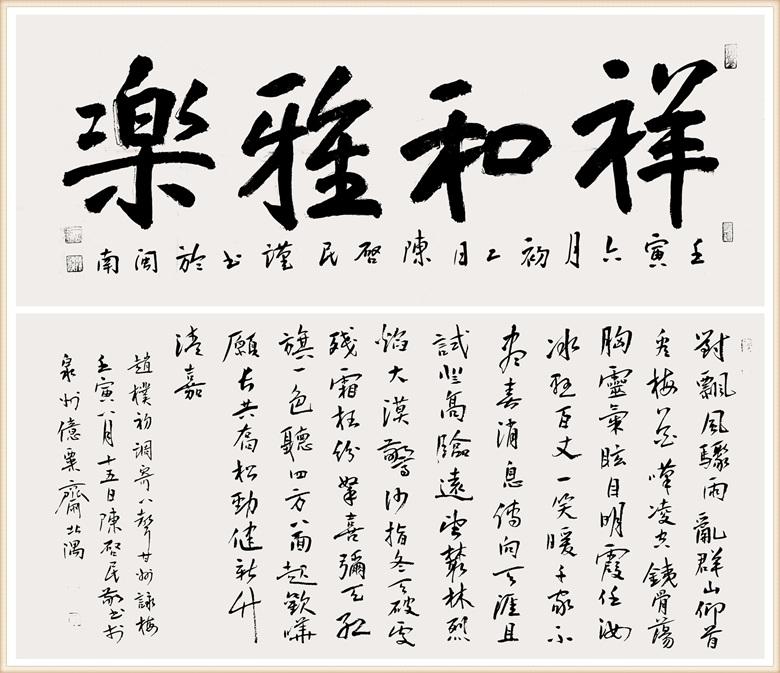 祥和雅樂
壬寅六月初二日陳啓民謹書於閩南
對飄風驟雨亂群山仰首
看梅花嘆凌空鐵骨蕩
胸靈氣眩目明霞任汝
冰懸百丈一笑暖千家不
盡春消息傳向天涯且
試登高臨遠望叢林烈
焰大漠驚沙指冬天破處
殘霜枉紛拏喜彌天紅
旗一色聽四方八面起歡嘩
願長共喬松勁健新竹
清嘉
趙樸初調寄八聲甘州詠梅
壬寅八月十五日陳啓民敬書於
泉州億粟齋北隅